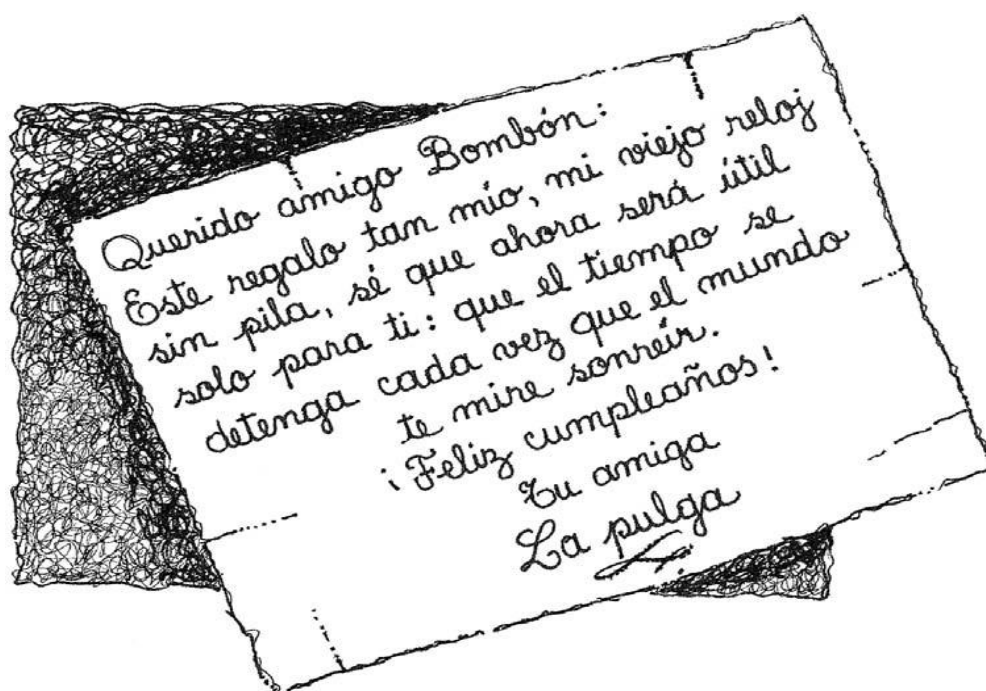 Querido amigo Bombón:
Este regalo tan mío, mi viejo reloj
sin pila, sé que ahora será útil
solo para ti: que el tiempo se
detenga cada vez que el mundo
te mire sonreír.
¡Feliz cumpleaños!
Tu amiga
La pulga